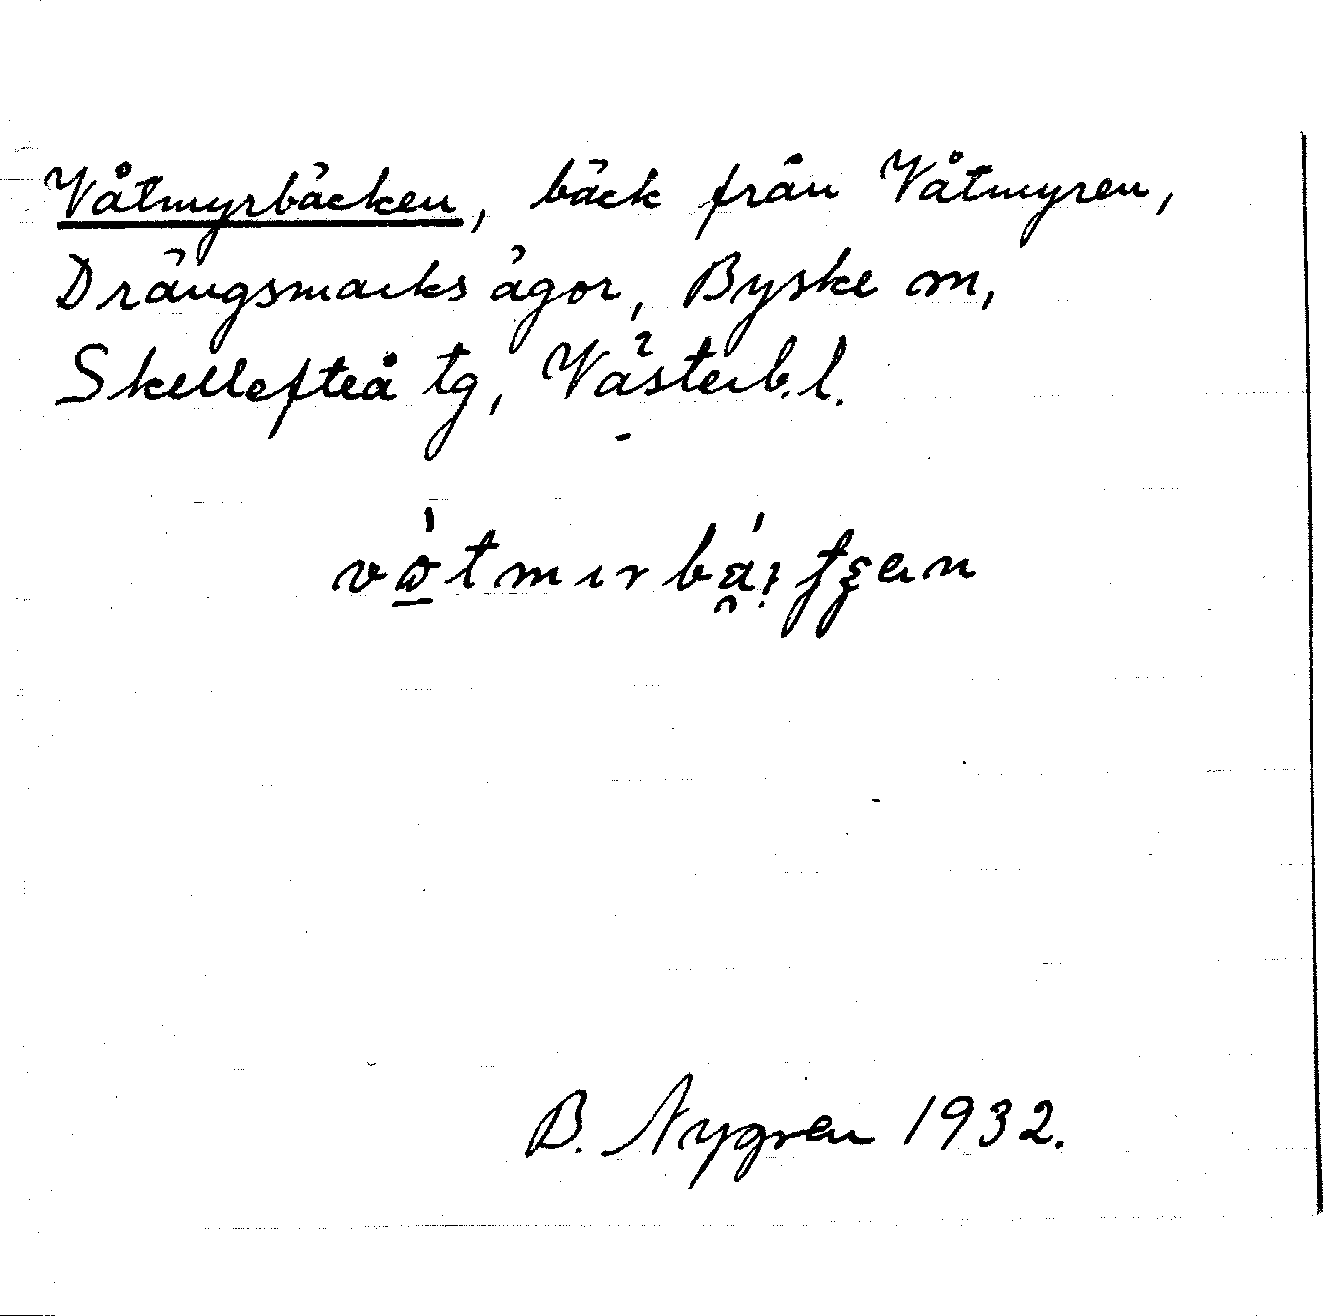 Våtmyrbäcken, bäck från Våtmyren,
Drängsmarks ägor, Byske sn,
Skellefteå tg, Västerb. l.
B. Nygren 1932.